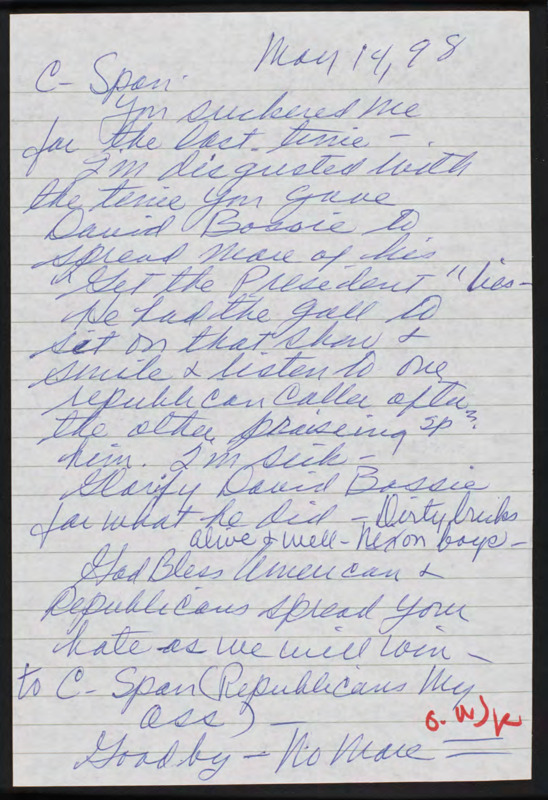 May 14, 98
C- Span.
You suckered me
for the last time -
I'm disgusted with
the time you gave
David Bossie to
spread more of his
"Get the President" lies -
He had the gall to
sit on that show &
smile & listen to one
republican caller after
the other praiseing sp?
him. I'm sick -
Glorify David Bossie
for what he did - Dirty tricks
alive & well - Nixon boys -
God Bless American &
Republicans spread your
hate as we will win -
to C- Span (Republicans My
ass) -
Good by - No More